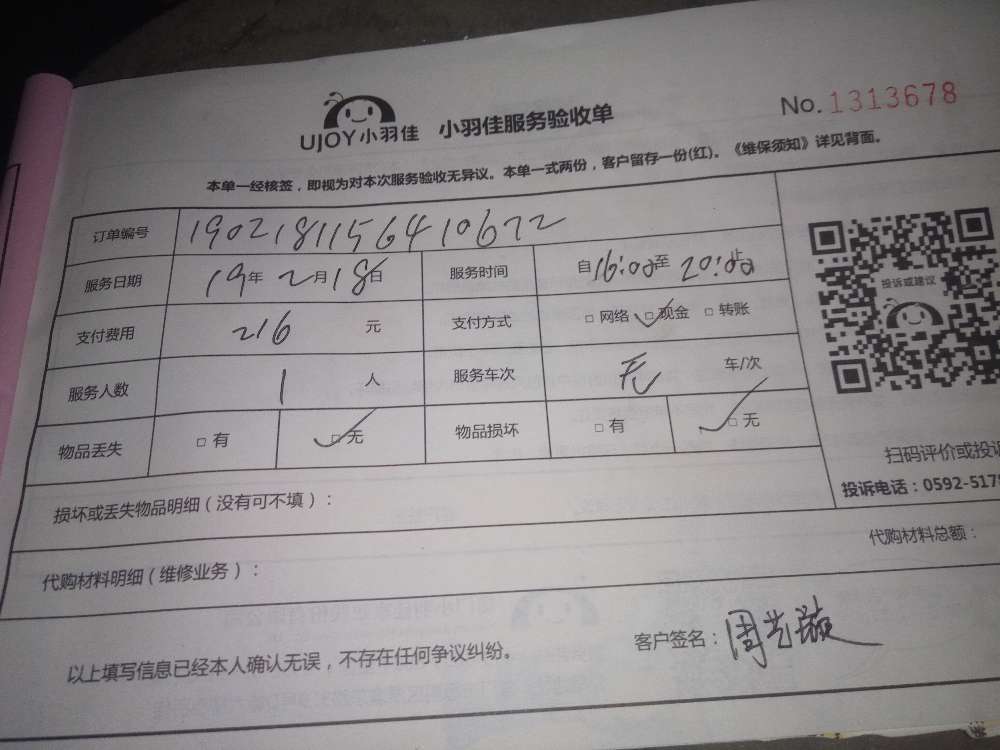 UJOY小羽佳 小羽佳服务验收单 No.1313678
本单一经核签，即视为对本次服务验收无异议。本单一式两份，客户留存一份(红)。《维保须知》详见背面。
订单编号 190218115641067​2
服务日期 19年2月18日 服务时间 自16:00至20:00止
支付费用 216 元 支付方式 □网络 □现金 □转账
服务人数 1 人 服务车次 无 车/次
物品丢失 □有 □无 物品损坏 □有 □无
投诉或建议
扫码评价或投诉
投诉电话：0592-517
损坏或丢失物品明细（没有可不填）：
代购材料明细（维修业务）： 代购材料总额：
以上填写信息已经本人确认无误，不存在任何争议纠纷。 客户签名：周艺璇